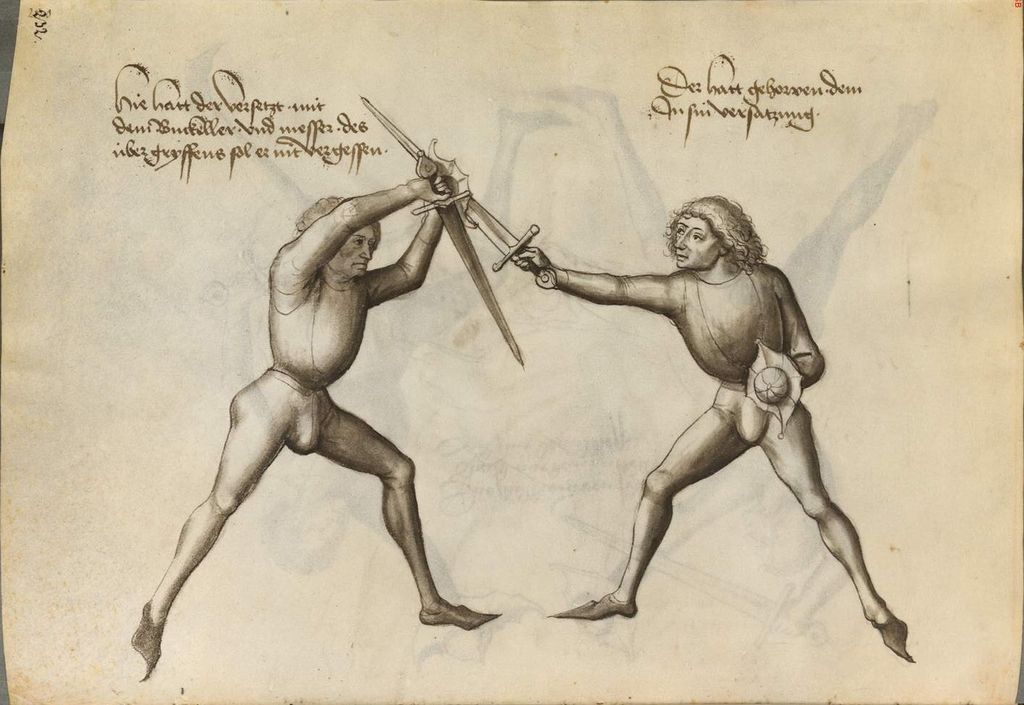 232.
Hie hatt der versetzt mit
dem Buckeller vnd messer · des
über gryffens sol er nit vergessen ·
Der hatt gehowen dem
In sin versatzung ·